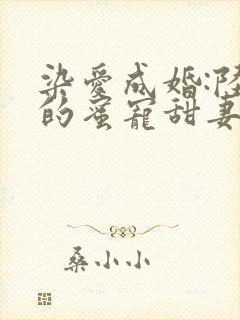 染爱成婚:陆
的蜜宠甜妻
桑小小